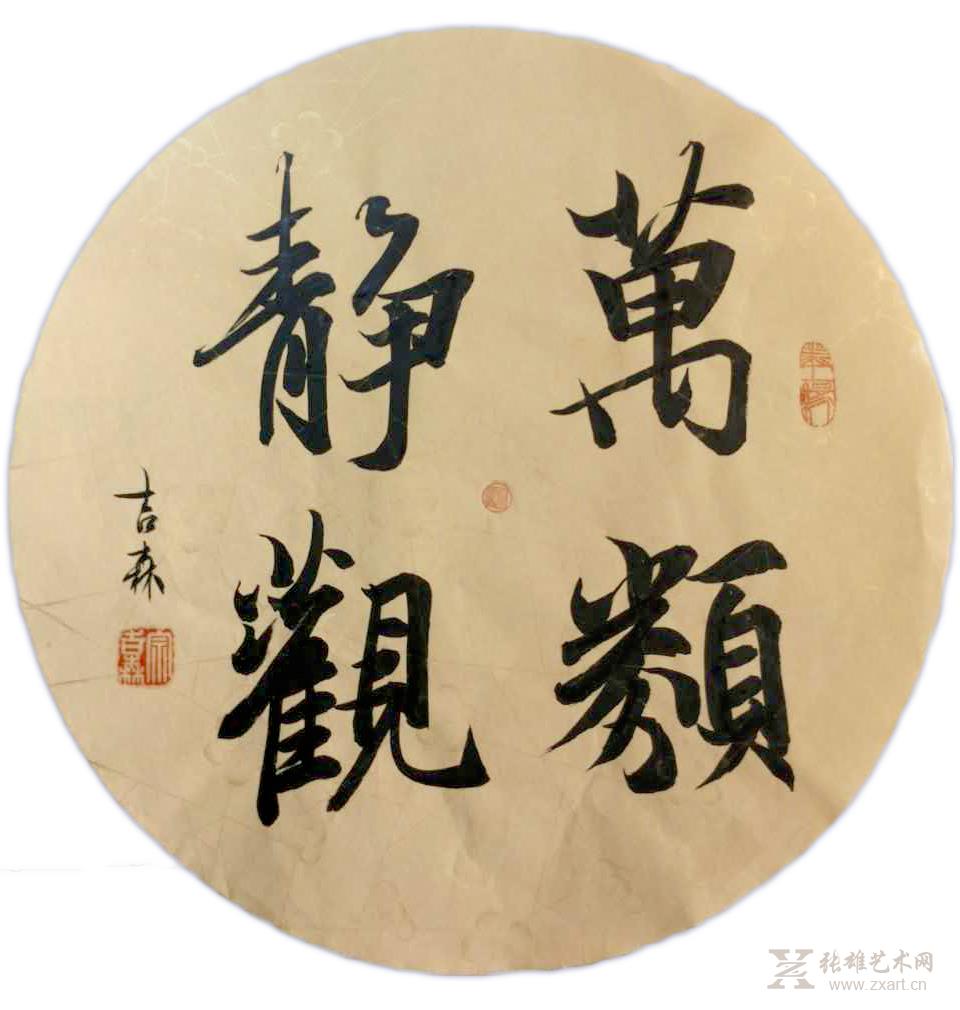 萬類
靜觀
吉森
张雄艺术网
www.zxart.cn